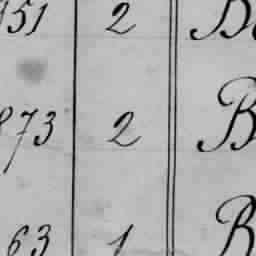 151 2 B
873 2 B
63 1 B